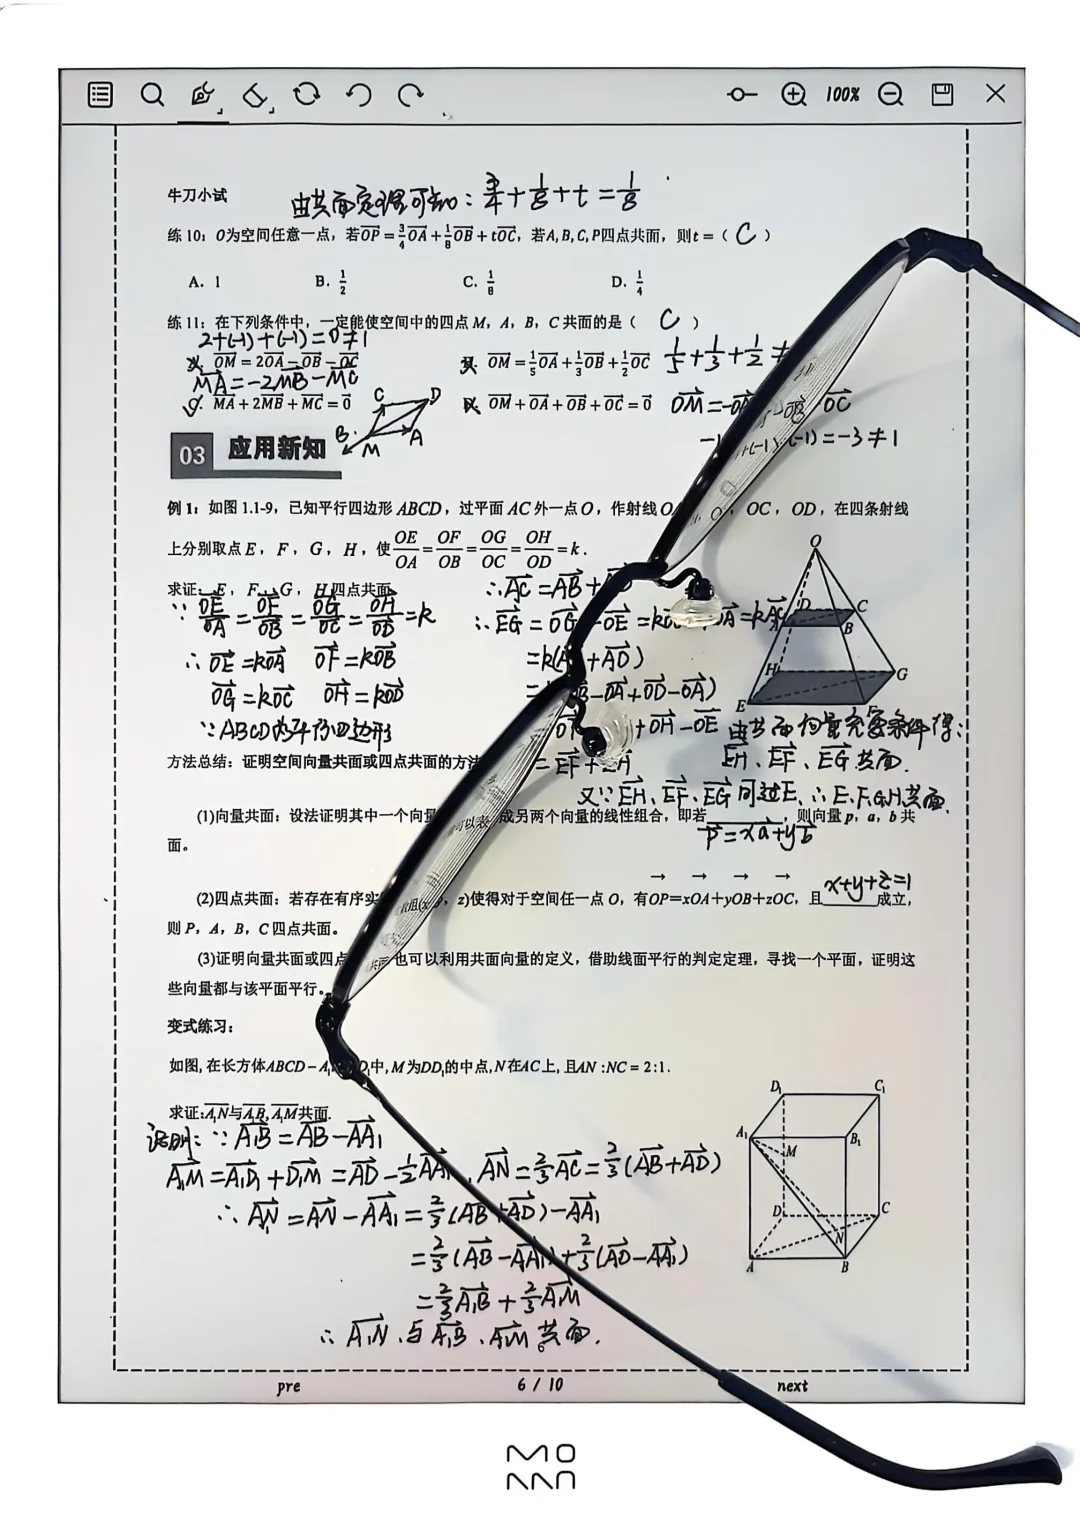 100%
牛刀小试
由共面定理可知：3/4+1/8+t=1/8
练 10：O为空间任意一点，若OP=3/4OA+1/8OB+tOC，若A,B,C,P四点共面，则t=（ C ）
A. 1 B. 1/2 C. 1/8 D. 1/4
练 11：在下列条件中，一定能使空间中的四点 M，A，B，C 共面的是（ C ）
2+(-1)+(-1)=0≠1
OM=2OA-OB-OC OM=1/5OA+1/3OB+1/2OC 1/5+1/3+1/2≠
MA=-2MB-MC
MA+2MB+MC=0 OM+OA+OB+OC=0 OM=-OA-OB-OC
-1+(-1)+(-1)=-3≠1
C D
B A
M
03 应用新知
例 1：如图 1.1-9，已知平行四边形 ABCD，过平面 AC 外一点 O，作射线 O，OC，OD，在四条射线
上分别取点 E，F，G，H，使OE/OA=OF/OB=OG/OC=OH/OD=k.
求证：E，F，G，H四点共面
∵ OE/OA=OF/OB=OG/OC=OH/OD=k
∴ OE=kOA OF=kOB
OG=kOC OH=kOD
∵ABCD为平行四边形
∴AC=AB+AD
∴EG=OG-OE=kOC-kOA=kAC
=k(AB+AD)
=k(OB-OA+OD-OA)
+OH-OE
=EF+EH
O
D C
B
H G
E F
由共面向量充要条件得：
EH、EF、EG共面.
又∵EH、EF、EG同过E、∴E.F.G.H共面.
方法总结：证明空间向量共面或四点共面的方法
(1)向量共面：设法证明其中一个向量可以表成另两个向量的线性组合，即若p=xa+yb，则向量 p，a，b 共
面。
(2)四点共面：若存在有序实数组(x，y，z)使得对于空间任一点 O，有OP=xOA+yOB+zOC，且x+y+z=1成立，
则 P，A，B，C 四点共面。
(3)证明向量共面或四点共面也可以利用共面向量的定义，借助线面平行的判定定理，寻找一个平面，证明这
些向量都与该平面平行。
变式练习：
如图，在长方体ABCD-A₁D₁中，M为DD₁的中点，N在AC上，且AN:NC=2:1.
求证:A₁N与A₁B,A₁M共面.
证明：∵A₁B=AB-AA₁
A₁M=A₁D₁+D₁M=AD-1/2AA₁，AN=2/3AC=2/3(AB+AD)
∴A₁N=AN-AA₁=2/3(AB+AD)-AA₁
=2/3(AB-AA₁)+2/3(AD-AA₁)
=2/3A₁B+2/3A₁M
∴A₁N与A₁B、A₁M共面.
D₁ C₁
A₁ B₁
M
D C
N
A B
6
pre 6 / 10 next
MO
NAN